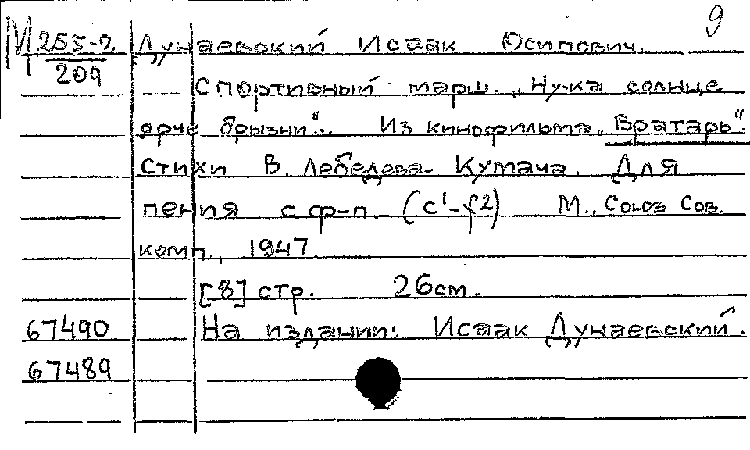 9
М 255-2 Дунаевский Исаак Осипович.
209
Спортивный марш. „Ну-ка солнце
ярче брызни". Из кинофильма „Вратарь".
Стихи В. Лебедева-Кумача. Для
пения с ф-п. (с¹-f²) М., Союз Сов.
комп., 1947
[8] стр. 26см.
67490 На издании: Исаак Дунаевский.
67489